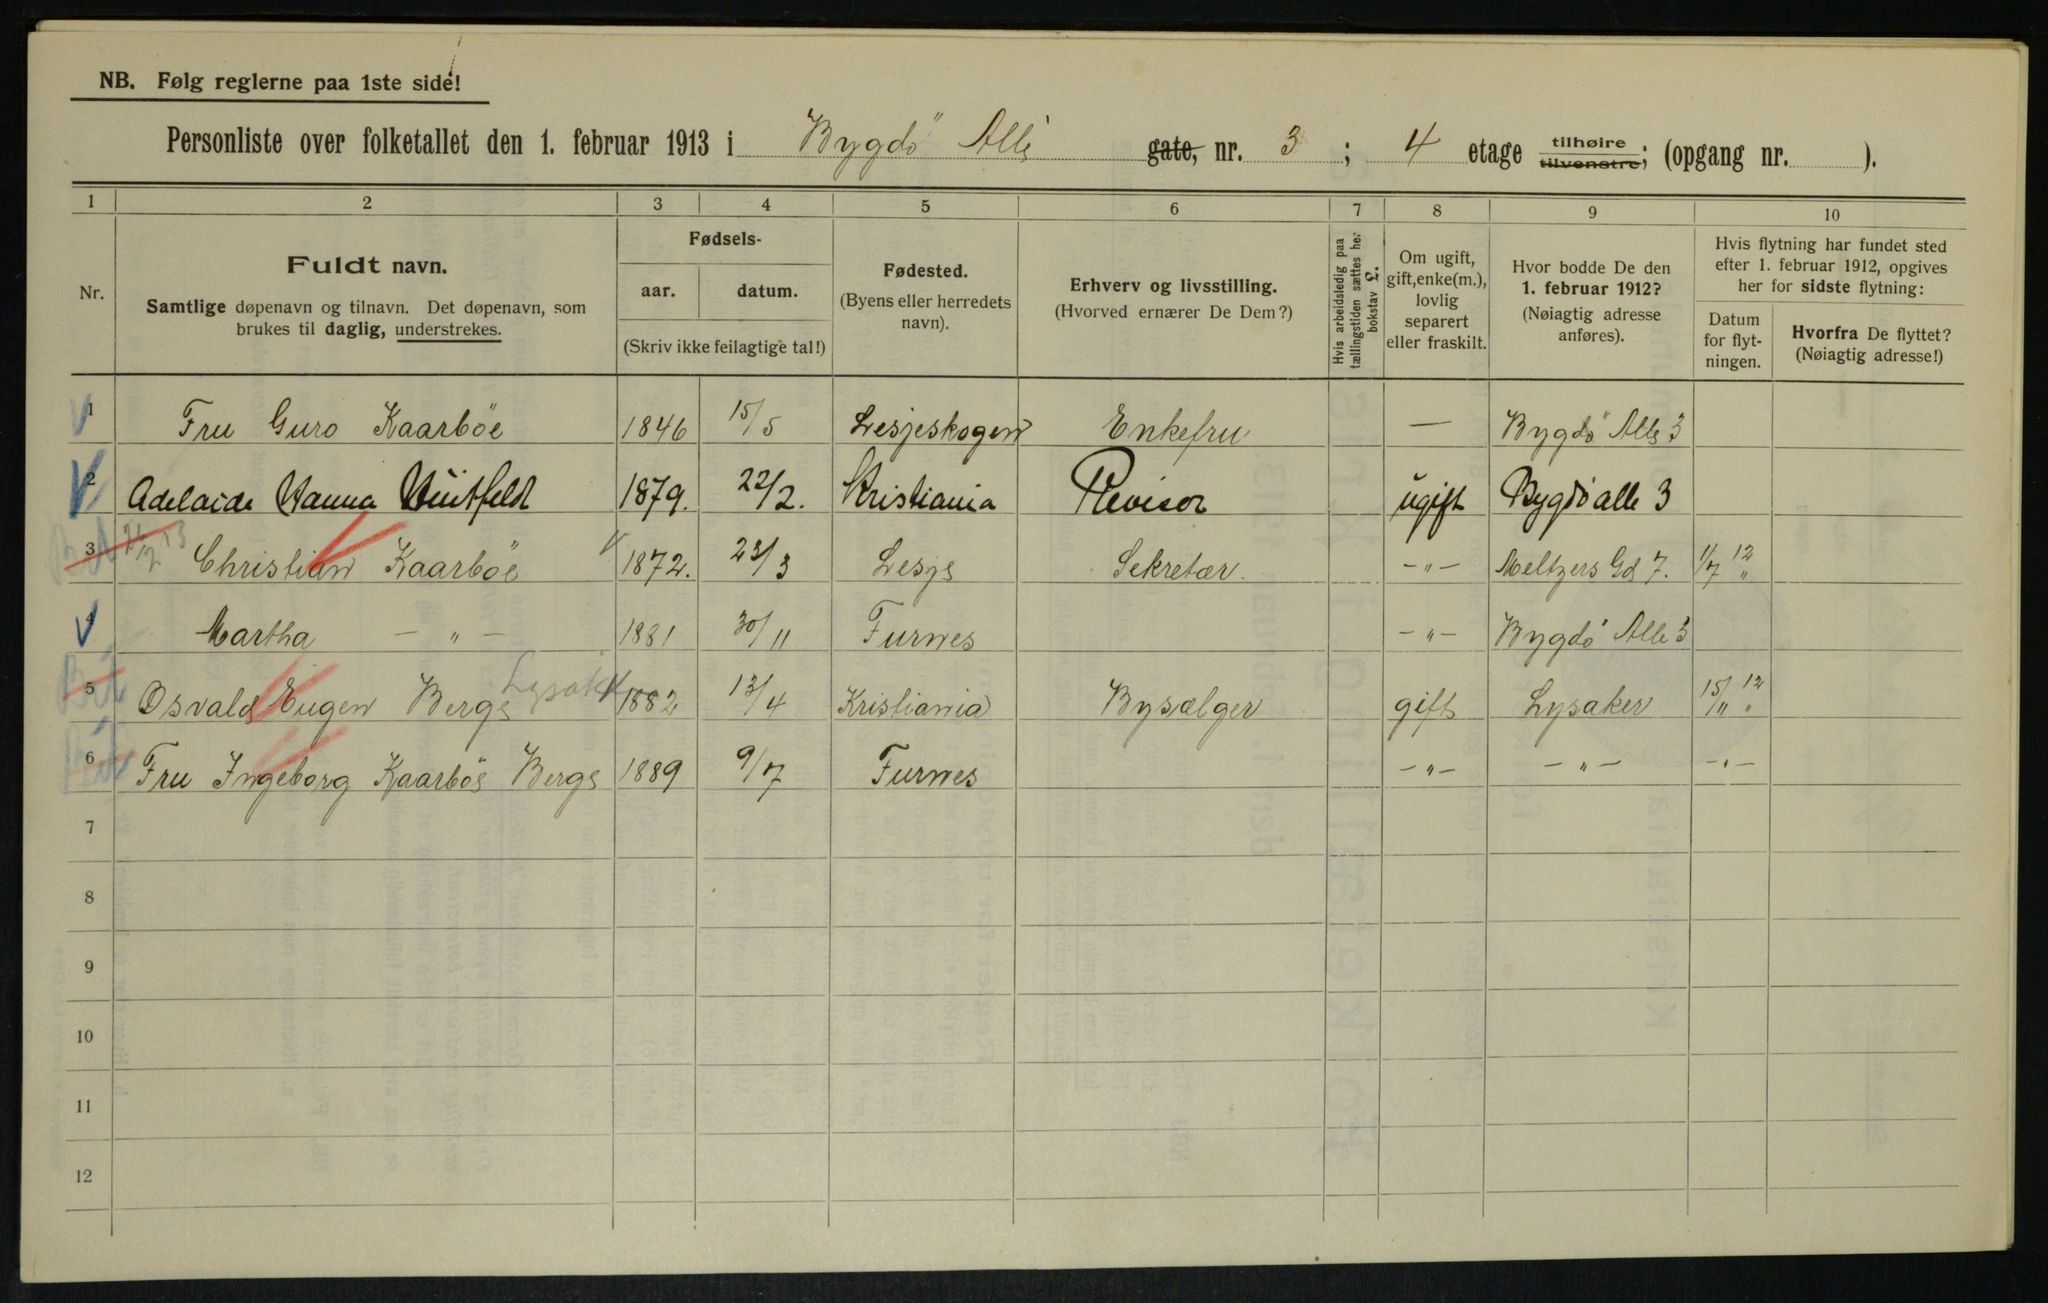 NB. Følg reglerne paa 1ste side!
Personliste over folketallet den 1. februar 1913 i Bygdö Allé gate, nr. 3 ; 4 etage tilhøire tilvenstre; (opgang nr. ).
1 2 3 4 5 6 7 8 9 10
Nr.
Fuldt navn.
Samtlige døpenavn og tilnavn. Det døpenavn, som
brukes til daglig, understrekes.
Fødsels-
aar. datum.
(Skriv ikke feilagtige tal!)
Fødested.
(Byens eller herredets
navn).
Erhverv og livsstilling.
(Hvorved ernærer De Dem?)
Hvis arbeidsledig paa
tællingstiden sættes her
bokstav L.
Om ugift,
gift, enke(m.),
lovlig
separert
eller fraskilt.
Hvor bodde De den
1. februar 1912?
(Nøiagtig adresse
anføres).
Hvis flytning har fundet sted
efter 1. februar 1912, opgives
her for sidste flytning:
Datum
for flyt-
ningen.
Hvorfra De flyttet?
(Nøiagtig adresse!)
1 Fru Guro Kaarböe 1846 15/5 Lesjeskogen Enkefru — Bygdö Alle 3
2 Adelaide Hanna Huitfeldt 1879. 22/2. Kristiania Revisor ugift Bygdö alle 3
3 Christian Kaarböe 1872. 23/3 Lesje Sekretær. -"- Meltzers Gd 7. 1/7 12 "
4 Martha -"- 1881 30/11 Furnes -"- Bygdö Alle 3
5 Osvald Eugen Bergs Lysaker 1882 13/4 Kristiania Bysælger gift Lysaker 15/11 12 "
6 Fru Ingeborg Kaarböe Bergs 1889 9/7 Furnes -"- -"- -"-
7
8
9
10
11
12